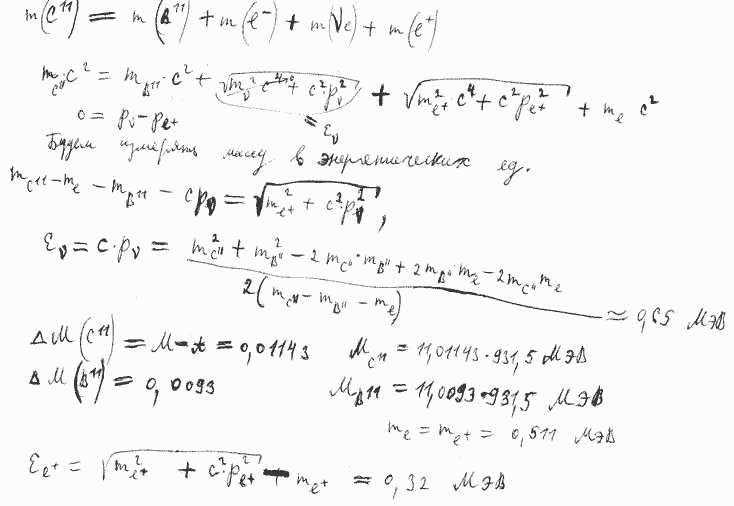 m(C¹¹) = m(B¹¹) + m(e⁻) + m(νe) + m(e⁺)
m_C¹¹ c² = m_B¹¹·c² + √(m_ν² c⁴ + c²·p_ν²) + √(m_e⁺² c⁴ + c² p_e⁺²) + m_e c²
0 = p_ν − p_e⁺
= ε_ν
Будем измерять массу в энергетических ед.
m_C¹¹ − m_e − m_B¹¹ − cp_ν = √(m_e⁺² + c²·p_ν²),
ε_ν = c·p_ν = (m_C¹¹² + m_B¹¹² − 2 m_C¹¹·m_B¹¹ + 2 m_B¹¹ m_e − 2 m_C¹¹ m_e) / 2(m_C¹¹ − m_B¹¹ − m_e) ≈ 0,65 МэВ
ΔM(C¹¹) = M − A = 0,01143 M_C¹¹ = 11,01143·931,5 МэВ
ΔM(B¹¹) = 0,0093 M_B¹¹ = 11,0093·931,5 МэВ
m_e = m_e⁺ = 0,511 МэВ
ε_e⁺ = √(m_e⁺² + c²·p_e⁺²) − m_e⁺ ≈ 0,32 МэВ